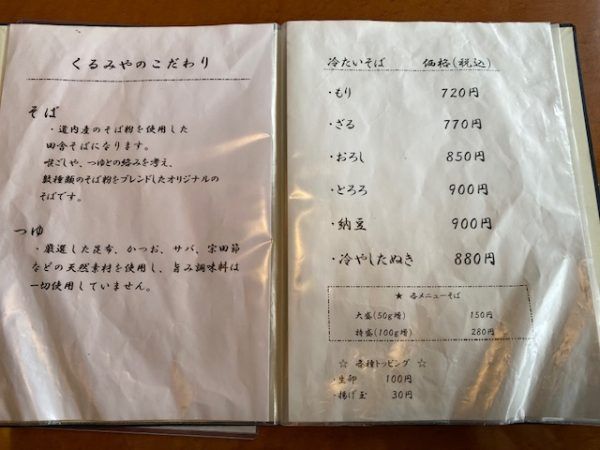 くるみやのこだわり
そば
・道内産のそば粉を使用した
田舎そばになります。
喉ごしや、つゆとの絡みを考え、
数種類のそば粉をブレンドしたオリジナルの
そばです。
つゆ
・厳選した昆布、かつお、サバ、宗田節
などの天然素材を使用し、旨み調味料は
一切使用していません。
冷たいそば 価格(税込)
・もり 720円
・ざる 770円
・おろし 850円
・とろろ 900円
・納豆 900円
・冷やしたぬき 880円
★ 各メニューそば
大盛(50g増) 150円
特盛(100g増) 280円
☆ 各種トッピング ☆
・生卵 100円
・揚げ玉 30円